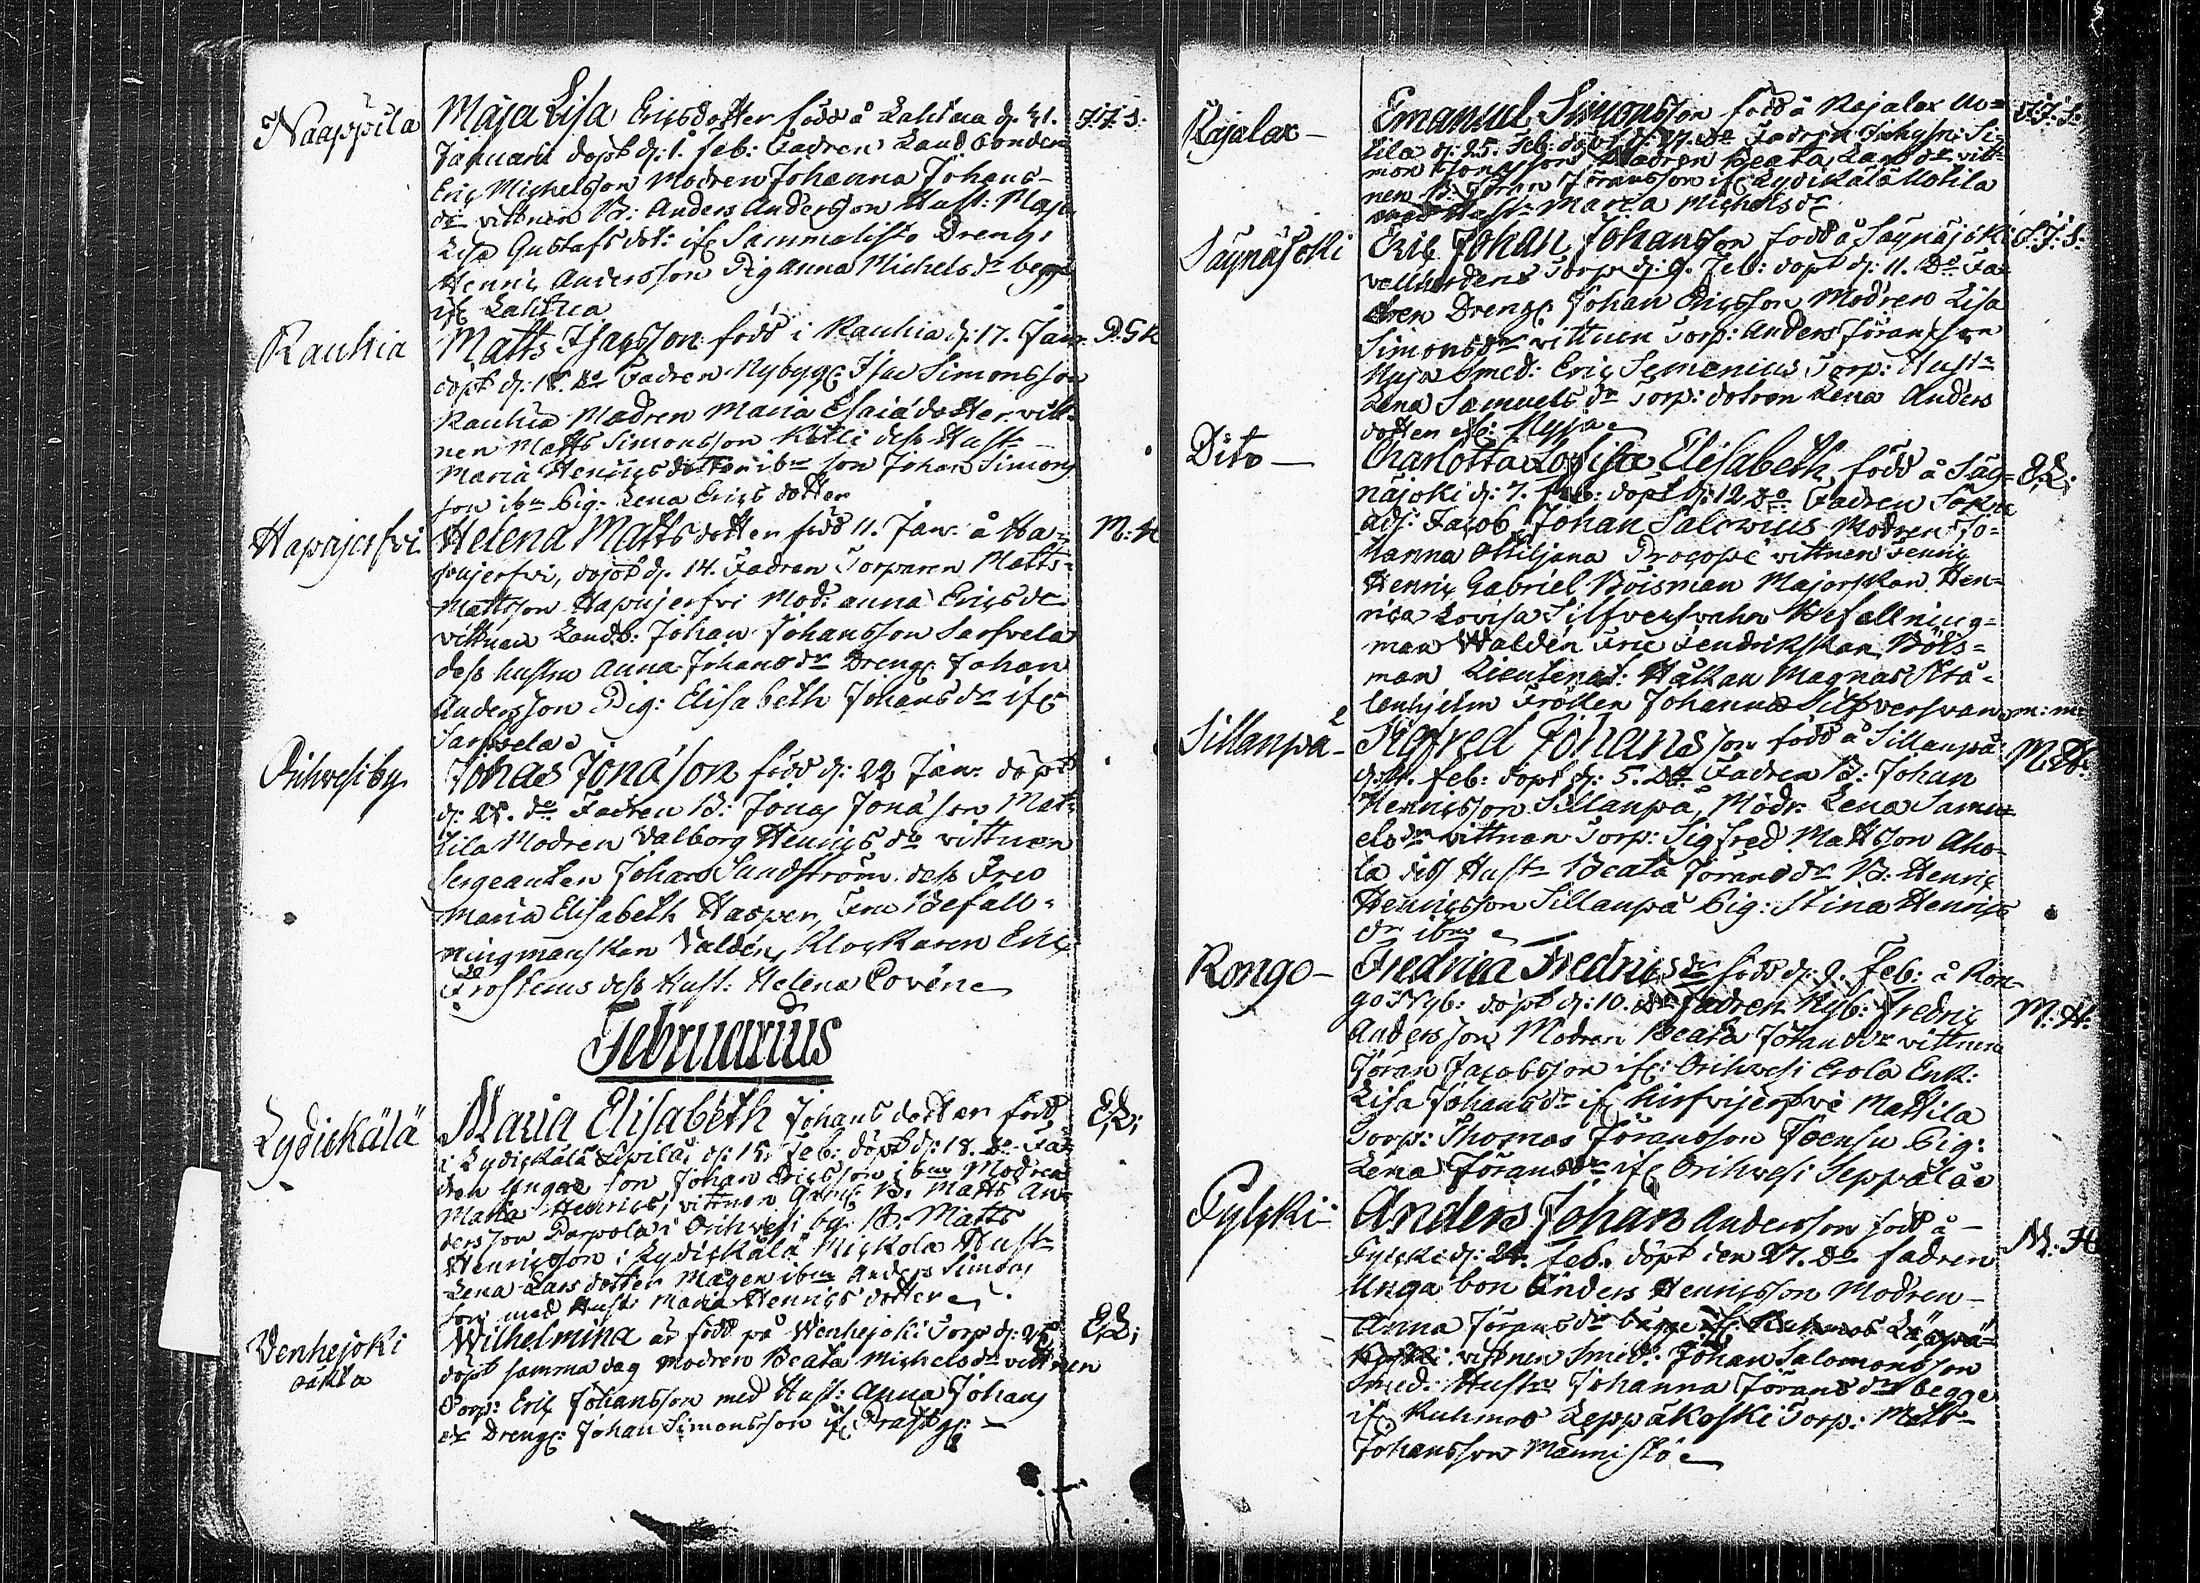 Naappila
Maja Lisa Ericsdotter född å Lahtua d. 31. J.J.S.
Januarii döpt d: 1. Feb: Fadren Landbonden
Eric Michelsson Modren Johanna Johans-
dr vittnen B: Anders Andersson Hust: Maja
Lisa Gustafsdot: if Sammalisto Dreng:
Henric Andersson Pig Anna Michelsdr begge
if Lahtua
Rauhia
Matts Isacsson född i Rauhia d: 17. Jan.
döpt d: 18. do Fadren Nybygg: Isac Simonsson
Rauhia Modren Maria Esaiädotter vitt-
nen Matts Simonsson dess Hust-
Maria Henricsdotter ibm son Johan Simons
son ibm Pig: Lena Erics dotter
Hapujerfvi
Helena Mattsdotter född 11. Jan: å Ha- M: H
pujerfvi, döpt d. 14. Fadren Torparen Matts
Mattsson Hapujerfvi Mod: Anna Ericsdr
vittnen Landb: Johan Johansson Sarfvela
dess hustru Anna Johansdr Dreng: Johan
Andersson Pig: Elisabeth Johansdr if
Sarfvela
Orihvesi by
Johan Jonäson född d: 22 Jan: döpt
d: 24. do Fadren B: Jonas Jonäson Mat-
tila Modren Valborg Henricsdr vittnen
Sergeanten Johan Sundström dess Fru
Maria Elisabeth Hasper, Fru Befall-
ningmanskan Valdén, Klockaren Eric
Frosterus dess Hust: Helena Povéne
Februarius
Lydickälä
Maria Elisabeth Johans dotter född E.L:
i Lydickälä d: 15. Feb: döpt d: 18. do Fa-
dren Unge son Johan Ericsson ibm Modren
Maria Henrics, vittnen B: Matts An-
dersson Parpola i Orihvesi by B: Matts
Henricsson i Lydickälä Mickola Hust-
Lena Larsdotter Mågen ibm Anders Simons
son med Hust: Maria Henrics dotter
Venhejoki
Wilhelmina är född på Wenhejoki Torp d: 25 E.L:
döpt samma dag Modren Beata Michelsdr vittnen
Torp: Eric Johansson med Hust: Anna Johans
dr Dreng: Johan Simonsson if Prästg:
Rajalax-
Emanuel Simonsson född å Rajalax Uo- J.J.S.
tila d: 25. Feb: döpt d: 27. do Fadren Si-
mon Modren Beata Larsdr vitt-
nen B: Jöran Jöransson if Lydikälä Uotila
med Hustr Maria Michelsdr
Säynäjoki
Eric Johan Johansson född å Säynäjoki J.J.S:
Torp d: 9. Feb: döpt d: 11. do Fa-
dren Dreng: Johan Ericsson Modren Lisa
Simonsdr vittnen Torp: Anders Jöransson
Myja Smed: Eric Semenius Torp: Hustr
Lena Samuelsdr Torp: dotron Lena Anders
dotter if: Myja
Dito-
Charlotta Lovisa Elisabeth född å Säy- E.L:
näjoki d: 7. Feb: döpt d: 12 do Fadren Sokne
adj: Jacob Johan Salovius Modren Jo-
hanna Ottiljana Procopé vittnen Fenric
Henric Gabriel Boisman Majorskan Hen-
rica Lovisa Silfversvahn Befallning-
man Walden Fru Fendrikskan Bois-
man Lieutenat: Håkan Magnas Stå-
lenhjelm Fröken Johanna Silfversvan m: m:
Sillanpä-
Sigfred Johansson född å Sillanpä M.H.
d: 4. Feb: döpt d: 5. do Fadren B: Johan
Henricsson Sillanpä, Modr: Lena Samu-
elsdr vittnen Torp: Sigfred Mattsson Aho-
la Hustr Beata Jöransdr B: Henric
Henricsson Sillanpä Pig: Stina Henrics
dr ibm
Rongo-
Fredrica Fredricsdr född d: 9. Feb: å Ron-
go Nyb: döpt d: 10. do Fadren Nyb: Fredric M: H:
Andersson Modren Beata Johansdr vittnen
Jöran Jacobsson if: Orihvesi Erola Enk:
Lisa Johansdr if Hirfvijerfvi Mattila
Torp: Thomas Jöransson Joensu Pig:
Lena Jöransdr if Orihvesi Seppälä
Pylcki-
Anders Johan Andersson född å - M: H
d: 24. Feb. döpt den 27. do fadren
Unga bon Anders Henricsson Modren-
Anna Jöransdr
vittnen Smed: Johan Salomonsson
Smed: Hustr Johanna Jöransdr begge
if Kuhmos Leppäkoski Torp: Matt-
Johansson Männistö